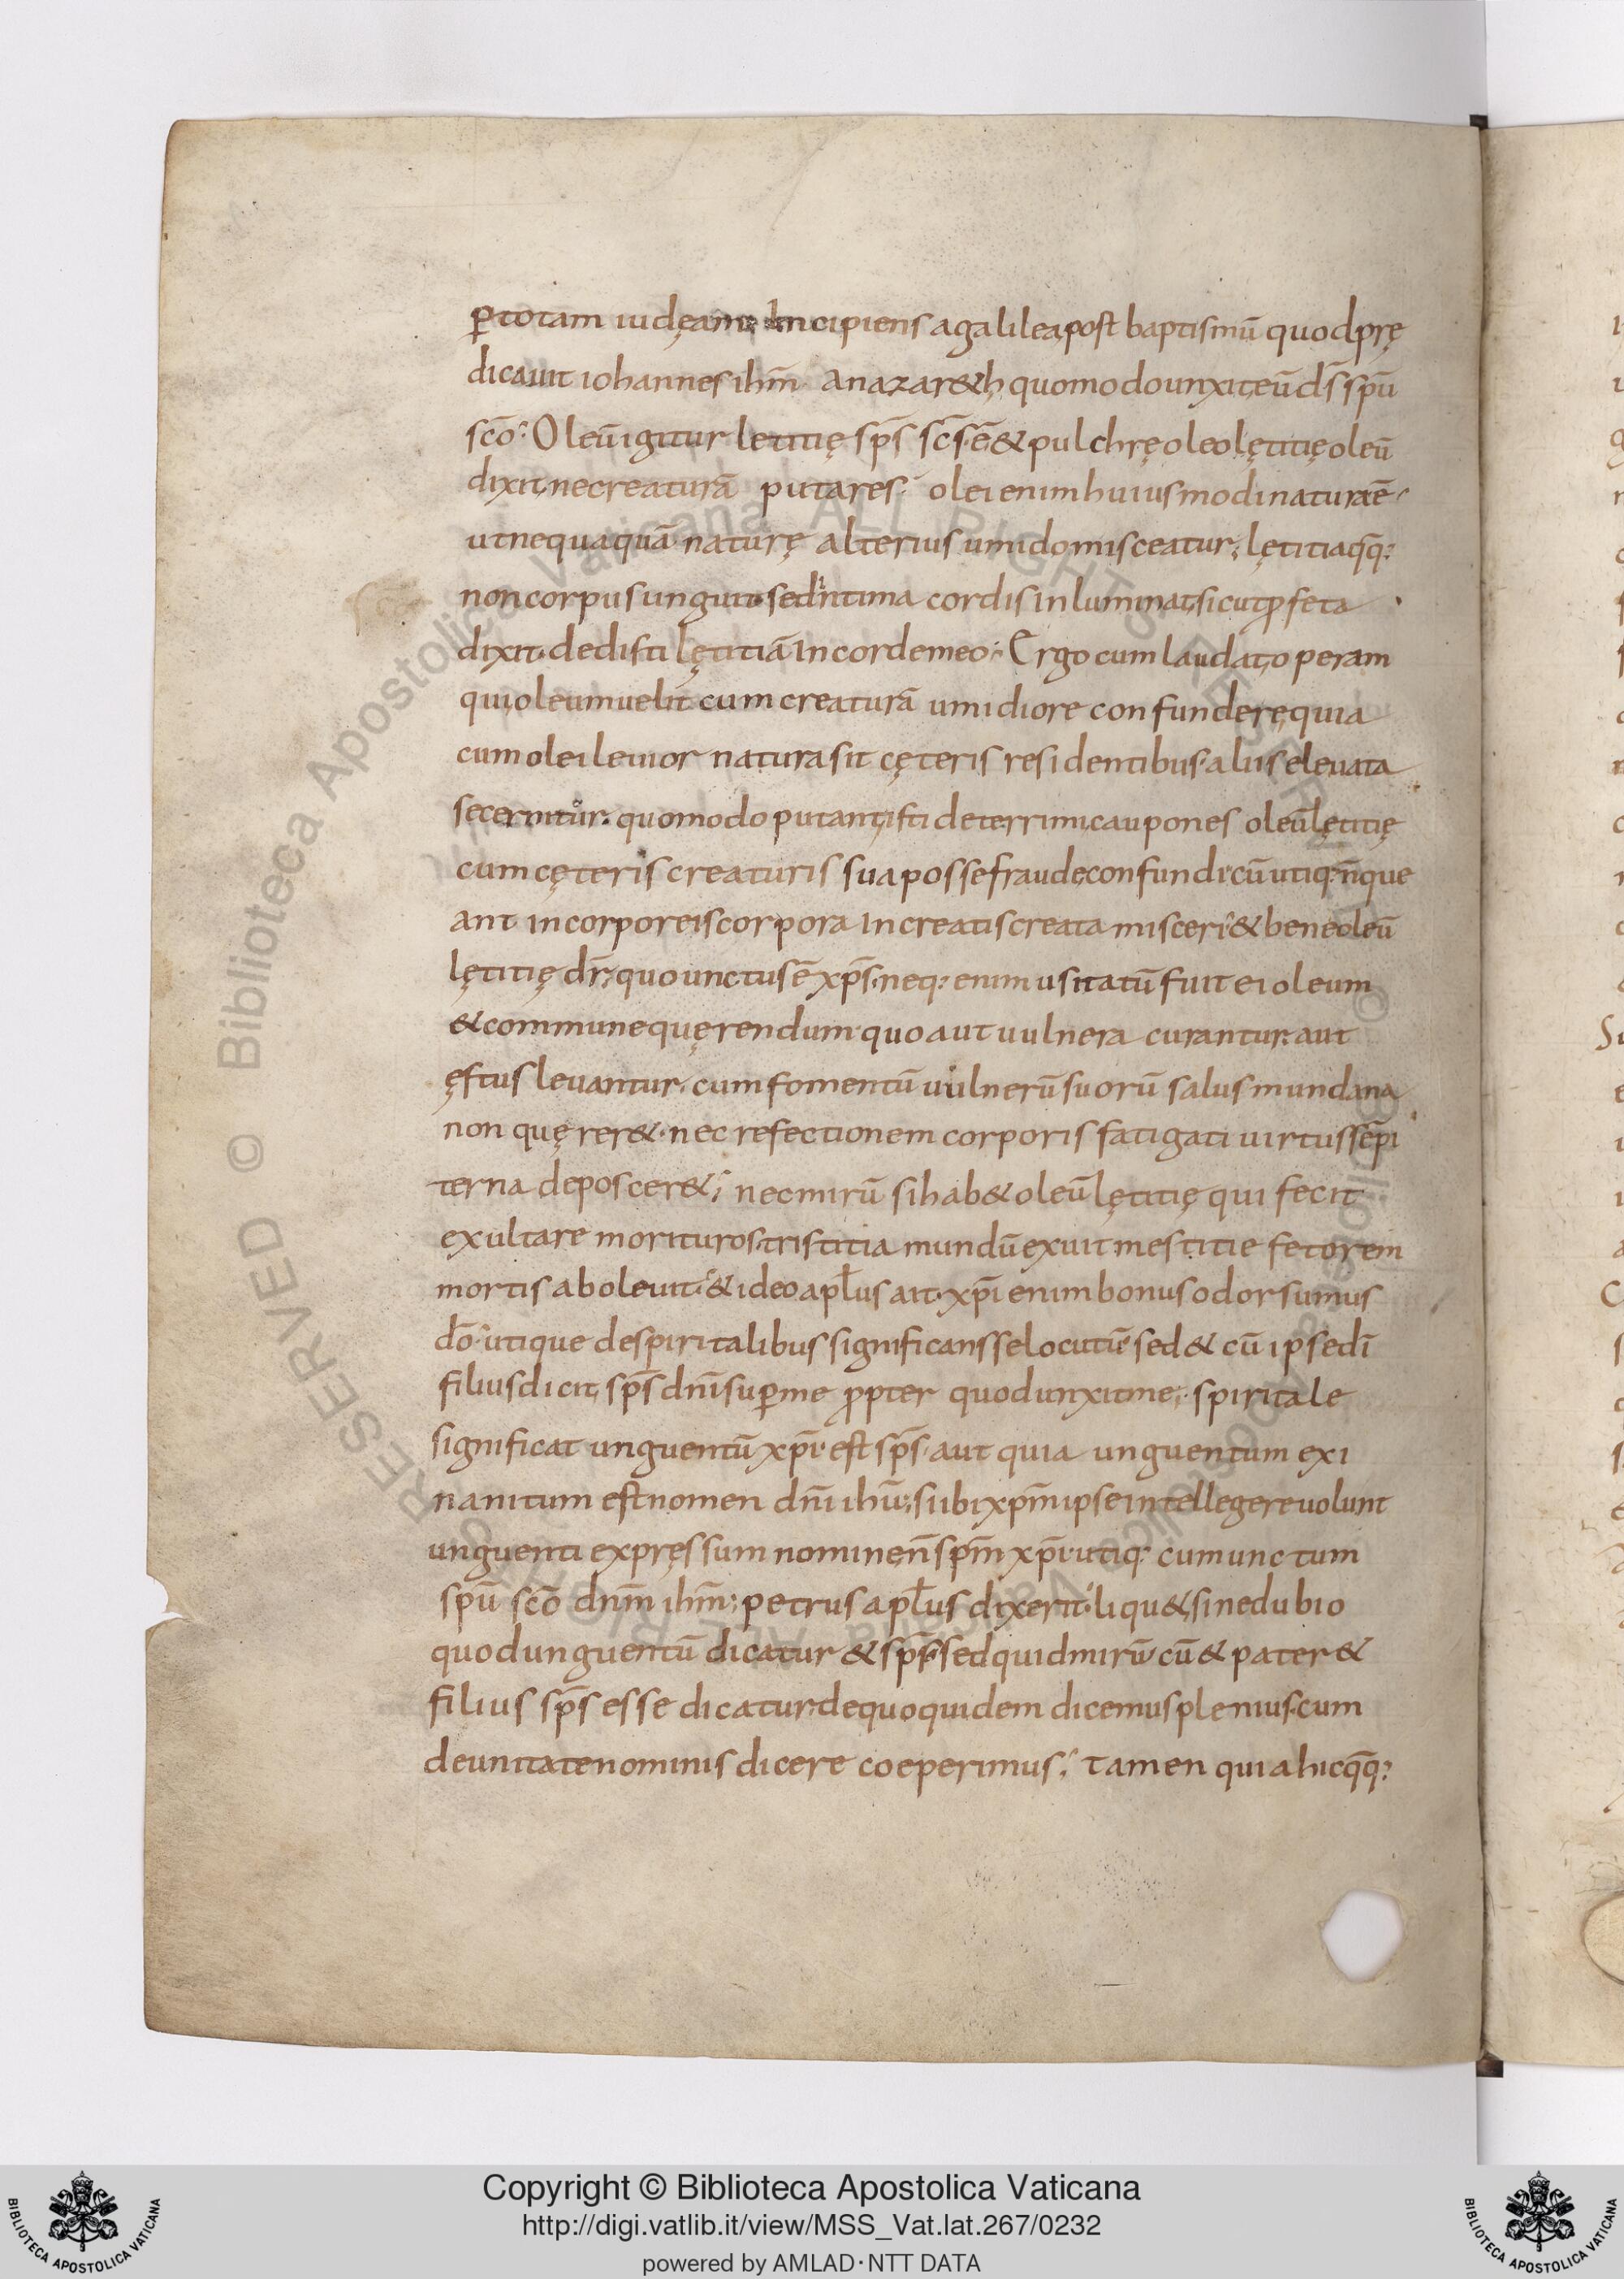 ꝑtotam iudęam Incipiens agalilea post baptismū quod prę
dicauit iohannes ihm̄ anazar&h quomodo unxit eū ds̄ spū
scō Oleū igitur letitię sps̄ scs̄ ē & pulchrę oleo lętitię oleū
dixit ne creaturā putares olei enim huiusmodi natura ē
ut nequaquā naturę alterius umido misceatur; lętitia q̄q:
non corpus unguit sed intima cordis inluminat, sicut ꝓfeta
dixit dedisti lętitiā In corde meo; Ergo cum laudat, operam
qui oleum uelit cum creaturā umidiore confundere, quia
cum olei leuior natura sit cęteris residentibus aliis eleuata
secernitur. quomodo putant isti deterrimi caupones oleū lętitię
cum cęteris creaturis sua posse fraude confundi cū utiq: n̄ que
ant incorporeis corpora Increatis creata misceri & bene oleū
lętitię dr̄; quo unctus ē xps̄ neq: enim usitatū fuit ei oleum
& commune quęrendum quo aut uulnera curantur aut
ęstus leuantur, cum fomentū uulnerū suorū salus mundana
non quęrer& nec refectionem corporis fatigati uirtus sēpi
terna deposcer&; nec mirū si hab& oleū lętitię qui fecit
exultare morituros, tristitia mundū exuit mestitie fetorem
mortis aboleuit & ideo apłus ait xpī enim bonus odor sumus
dō utique despiritalibus significans se locutū sed & cū ipse dī
filius dicit, sps̄ dnī suꝑ me ꝓpter quod unxit me; spiritale
significat unguentū xpī est sps̄ aut quia unguentum exi
nanitum est nomen dnī ihū; si ibi xpm̄ ipse intellegere uolunt
unguenti expręssum nomine n̄ spm̄ xpī utiq: cum unctum
spū scō dnm̄ ihm̄; petrus apłus dixerit liqu&, sine dubio
quod unguentū dicatur & sps̄ sed quid mirū cū & pater &
filius sps̄ esse dicatur de quo quidem dicemus plenius cum
deunitate nominis dicere coeperimus; Tamen quia hic q̄q:
Copyright © Biblioteca Apostolica Vaticana
http://digi.vatlib.it/view/MSS_Vat.lat.267/0232
powered by AMLAD · NTT DATA
BIBLIOTECA APOSTOLICA VATICANA
BIBLIOTECA APOSTOLICA VATICANA